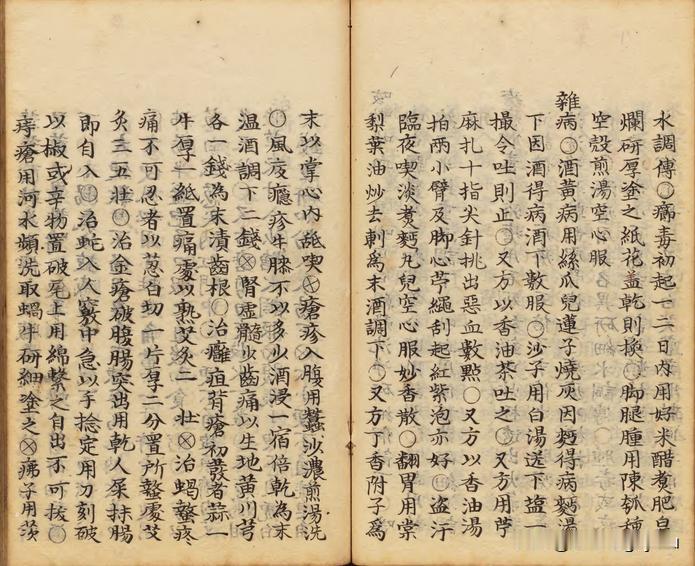 水調傅〇癤毒初起一二日内用好米醋煮肥皂
爛研厚塗之紙花盖乾則換〇脚腿腫用陳瓠種
空殻煎湯空心服
雜病〇酒黄病用絲瓜兒蓮子燒灰因麪得病麪湯
下因酒得病酒下數服〇沙子用白湯送下塩一
撮令吐則止〇又方以香油茶吐之〇又方用苧
麻扎十指尖針挑出惡血數點〇又方以香油湯
拍兩小臂及脚心苧繩刮起紅紫泡亦好〇盗汗
臨夜喫淡煑麪丸兒空心服妙香散〇翻胃用棠
梨葉油炒去刺爲末酒調下〇又方丁香附子爲
末以掌心内舐喫〇瘡疹入腹用蠶沙濃煎湯洗
〇風疫癮疹牛膝不以多少酒浸一宿倍乾為末
温酒調下二錢〇腎虚髓少齒痛以生地黄川芎
各一錢為末漬齒根〇治癰疽背瘡初發者蒜一
片厚一紙置痛處以熟艾灸二壮〇治蝎螫疼
痛不可忍者以葱白切一片厚二分置所螫處艾
灸三五壮〇治金瘡破腹腸突出用乾人屎抹腸
即自入〇治蛇入人竅中急以手捻定用刀刻破
以椒或辛物置破尾上用綿繫之自出不可拔〇
痔瘡用河水頻洗取蝸牛研細塗之〇疿子用